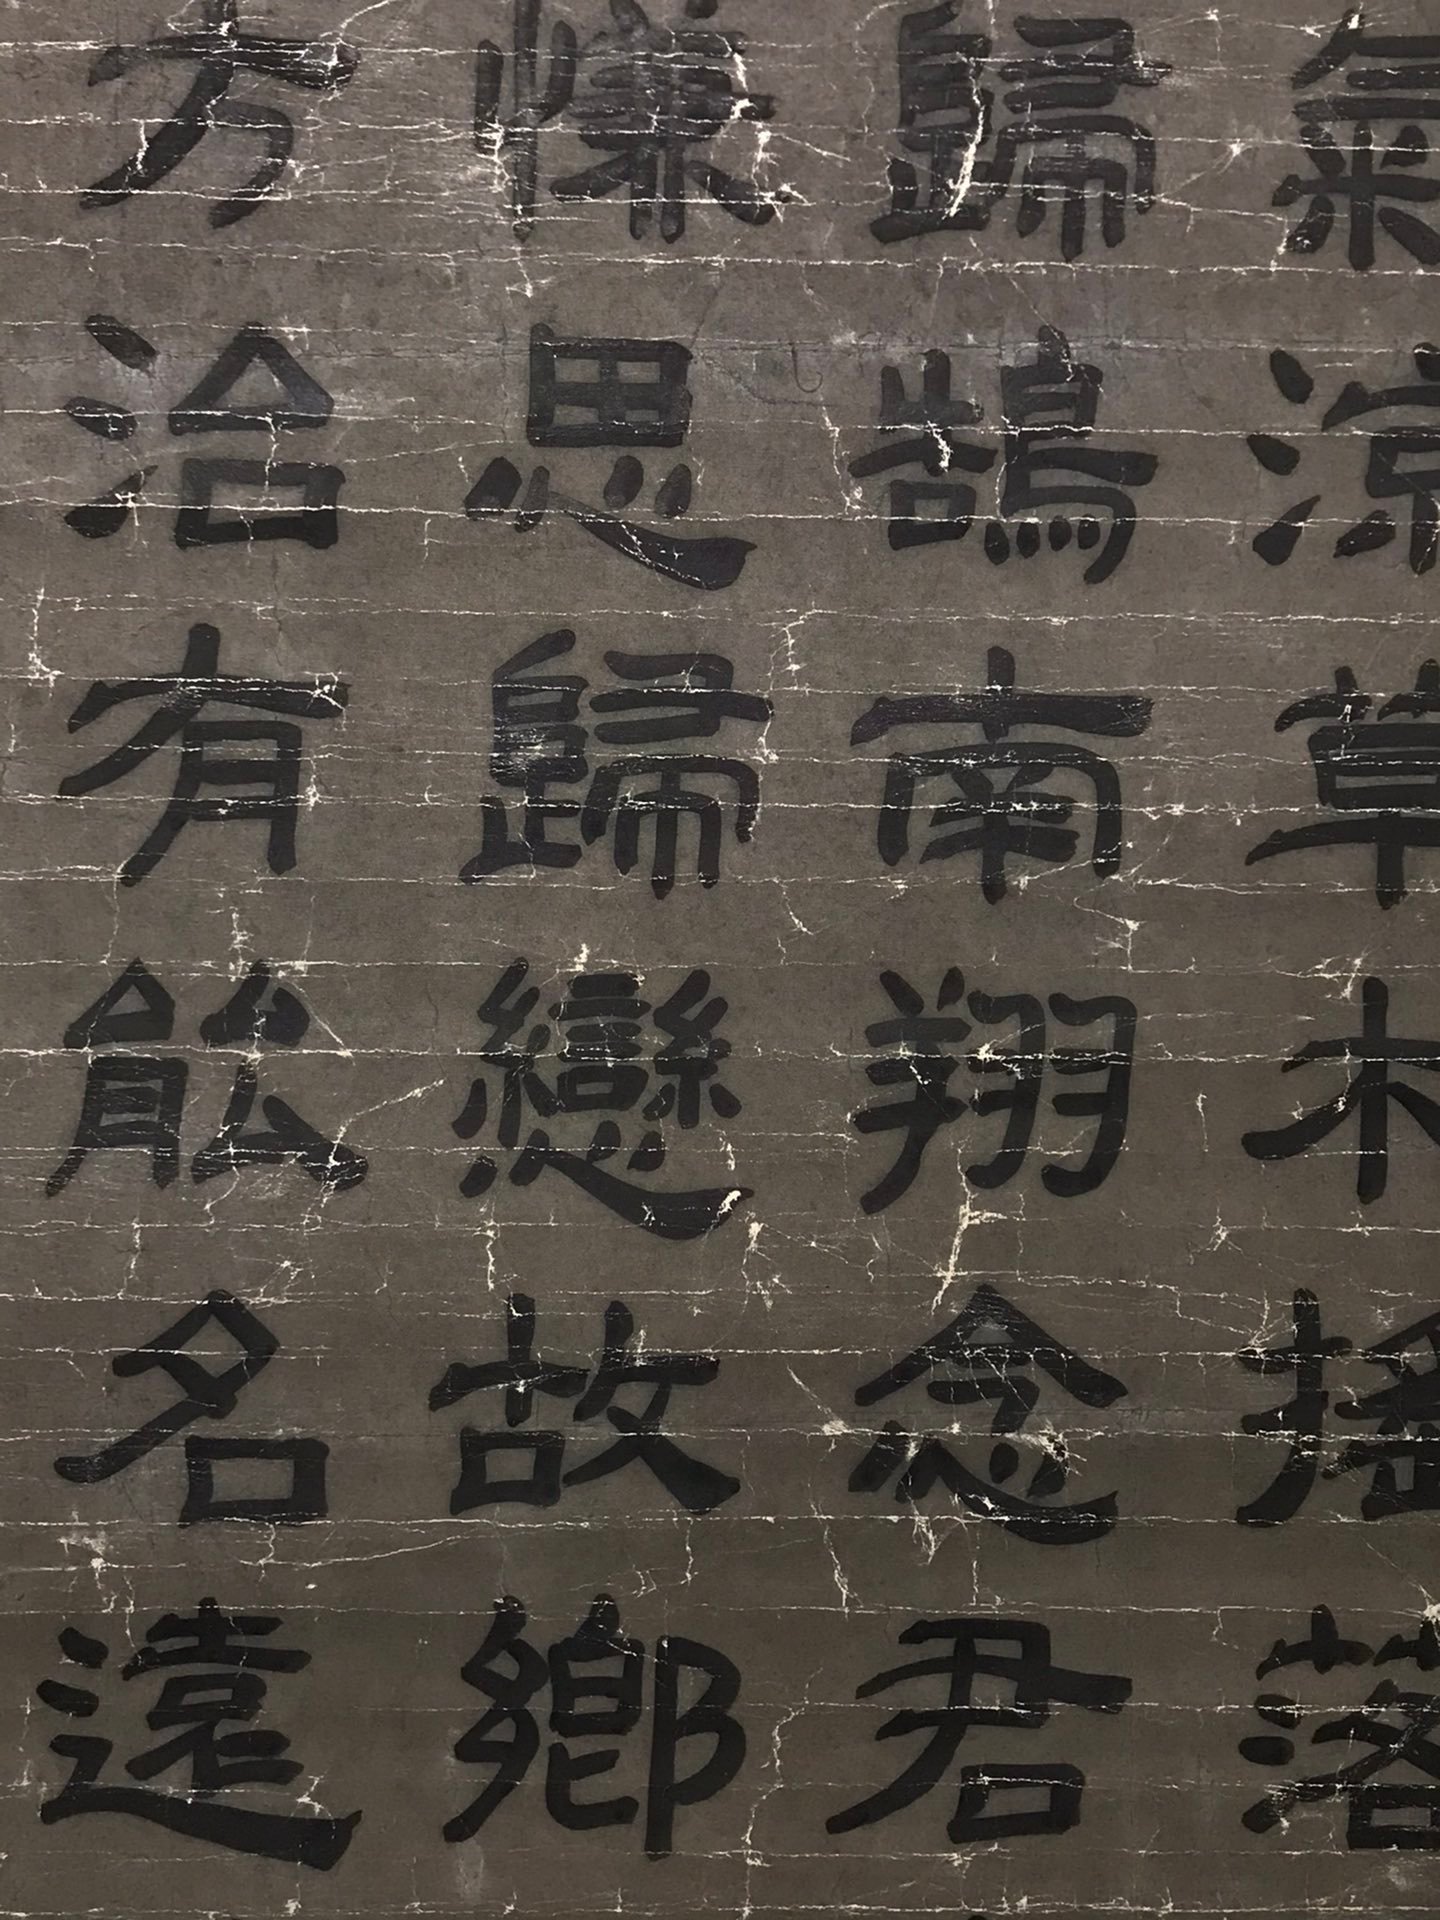 氣涼草木搖落
歸鵠南翔念君
慊思歸戀故鄉
方治有能名遠